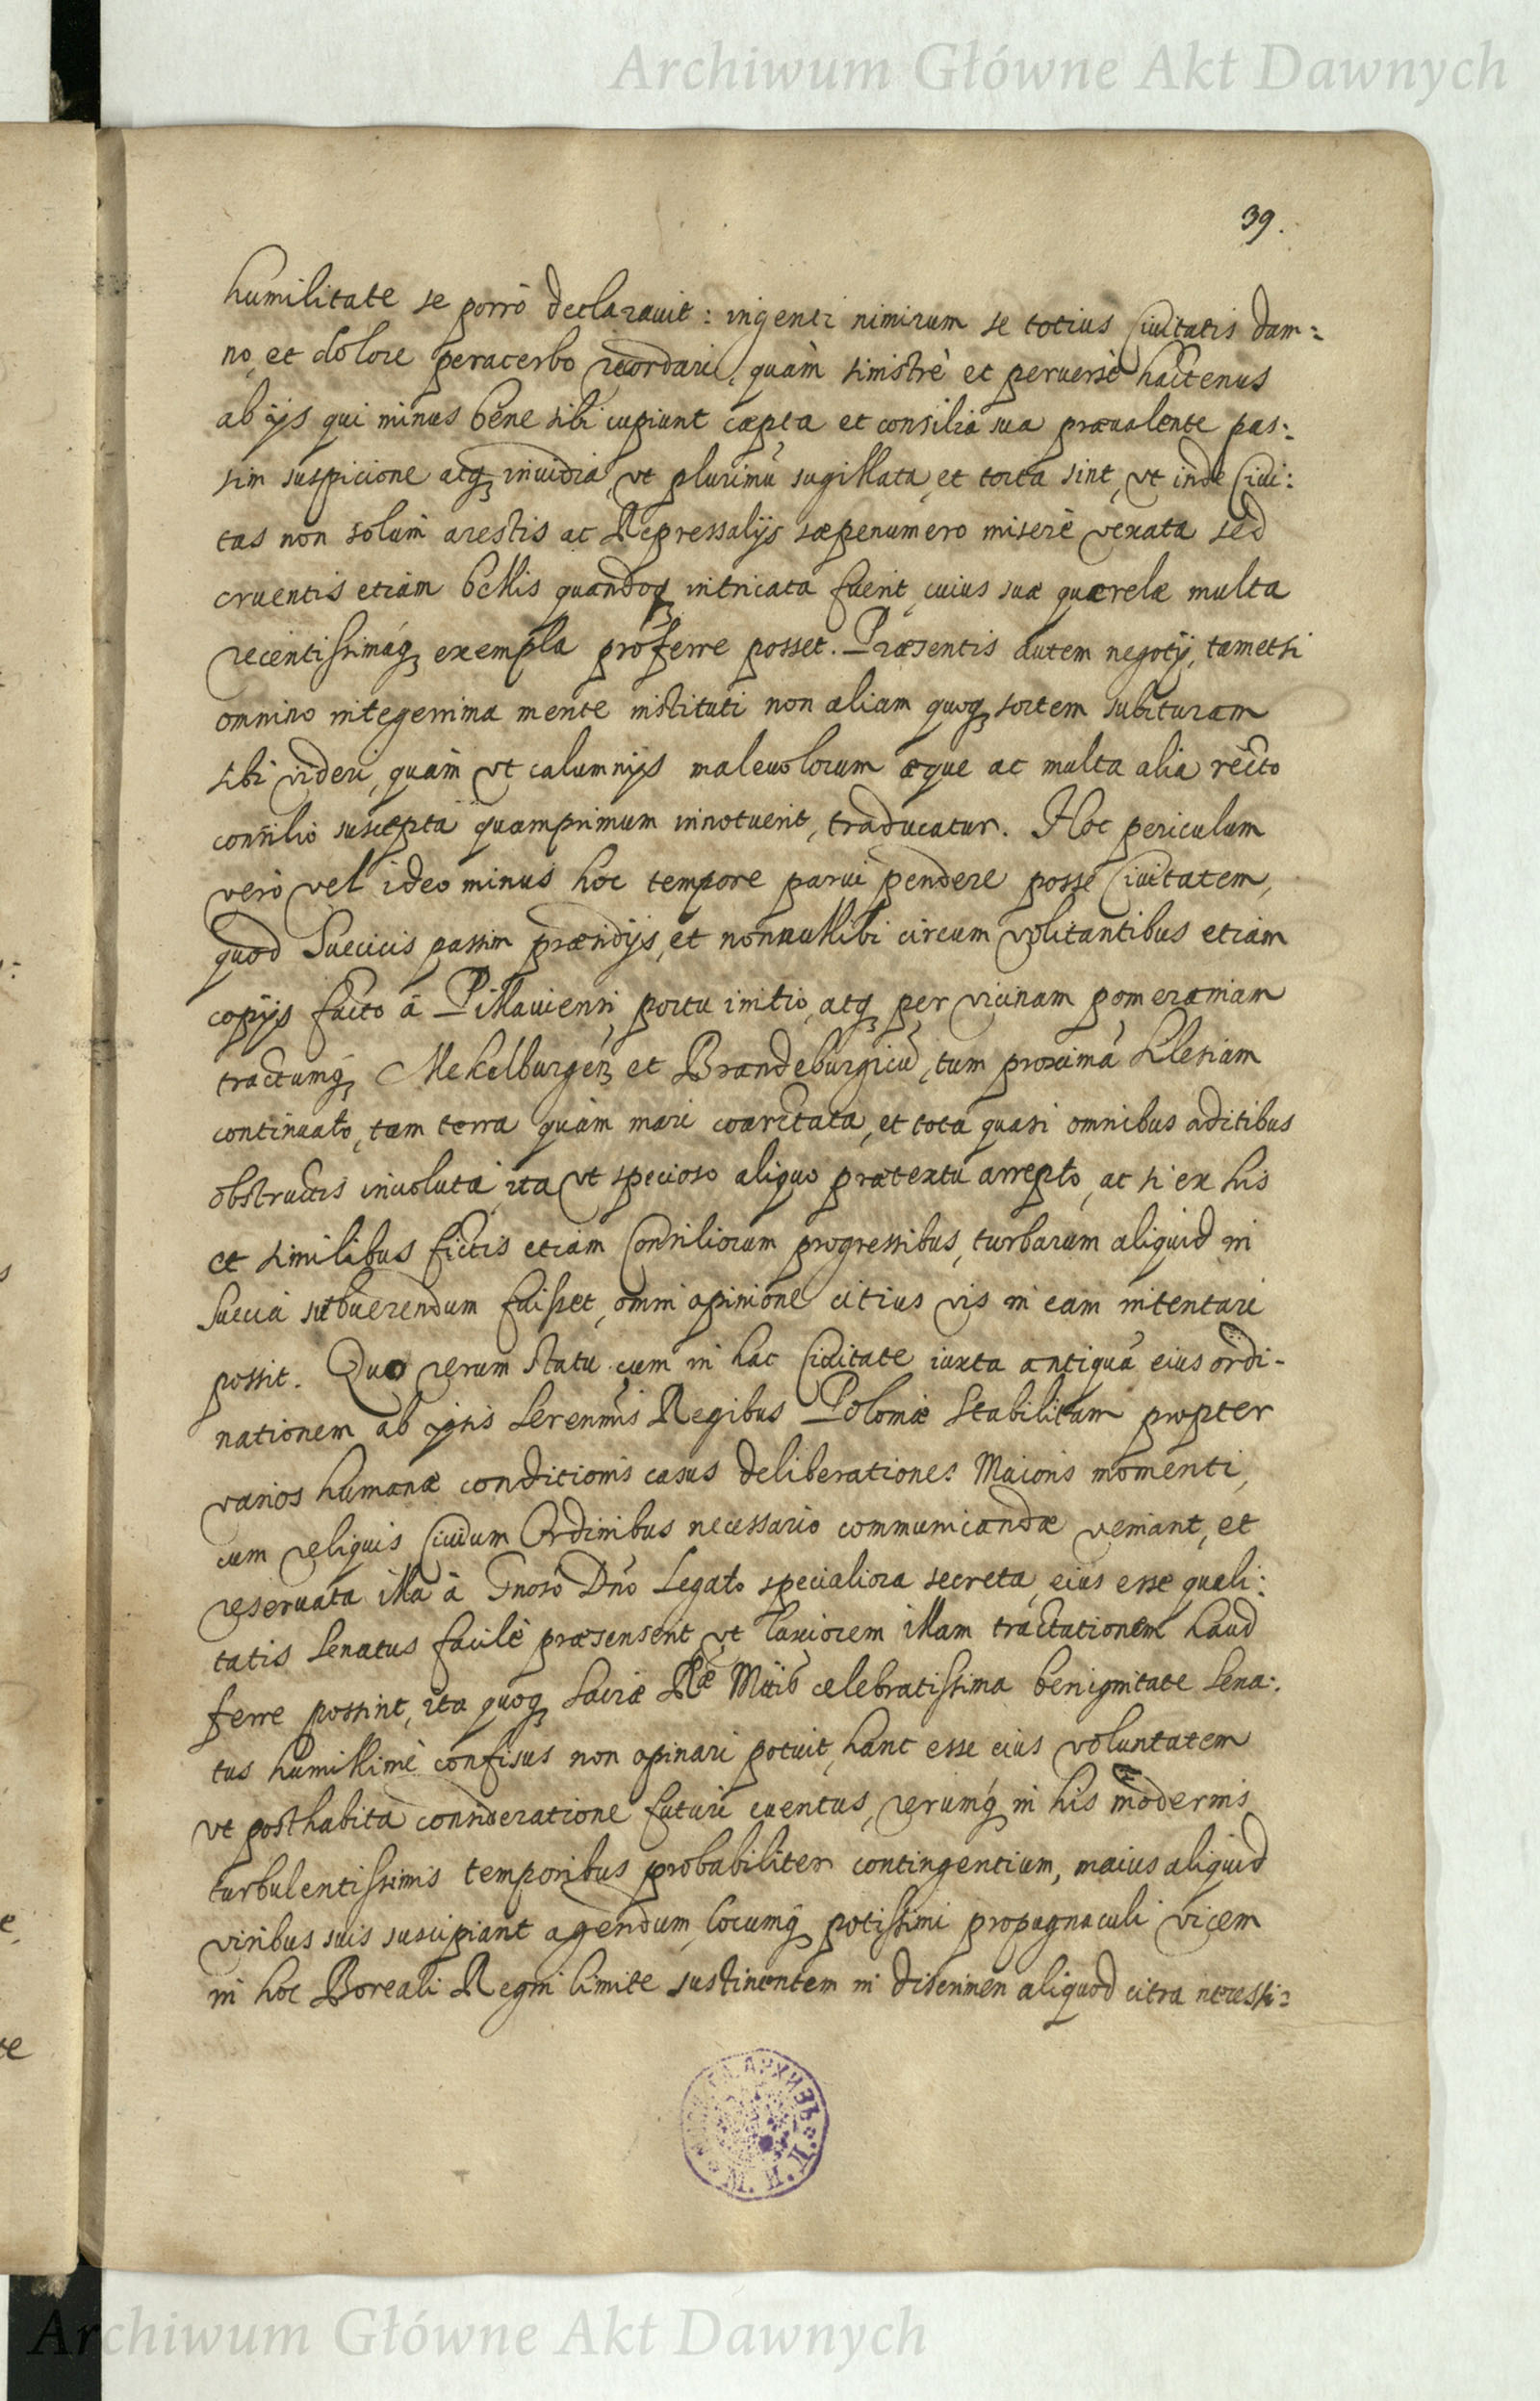 Archiwum Główne Akt Dawnych
39.
humilitate se porrò declarauit: ingenti nimirum se totius Ciuitatis dam:
no, et dolore peracerbo recordari, quàm sinistrè et peruersè hactenus
ab ijs qui minus bene sibi cupiunt cæpta et consilia sua præualente pas:
sim suspicione atq; inuidia, vt plurimũ sugillata, et torta sint, vt inde Ciui:
tas non solùm arestis ac Repressalijs sæpenumero miserè vexata sed
cruentis etiam bellis quandoq; intricata fuerit, cuius suæ quærelæ multa
recentissimáq; exempla proferre posset. Præsentis autem negotij, tametsi
omnino integerrima mente instituti non aliam quoq; sortem subituram
sibi videri, quàm vt calumnijs maleuolorum æque ac multa alia recto
consilio suscepta quamprimum innotuerit, traducatur. Hoc periculum
verò vel ideo minus hoc tempore parui pendere posse Ciuitatem,
quod Suecicis passim præsidijs, et nonnullibi circum volitantibus etiam
copijs facto à Pillauiensi portu initio, atq; per vicinam pomeraniam
tractumq; Mekelburgen; et Brandeburgicũ, tum proximã Silesiam
continuato, tam terra quàm mari coarctata, et tota quasi omnibus aditibus
obstructis inuoluta, ita vt specioso aliquo prætextu arrepto, ac si ex his
et similibus fictis etiam Consiliorum progressibus, turbarum aliquid in
Suecia subuerendum fuisset, omni opinione citius vis in eam intentari
possit. Quo rerum statu cum in hac Ciuitate iuxta antiquã eius ordi-
nationem ab ipsis Serenm̃is Regibus Poloniæ Stabilitam propter
varios humanæ conditionis casus deliberationes Maioris momenti,
cum reliquis Ciuium Ordinibus necessario communicandæ veniant, et
reseruata illa à Gnoso Dño Legato specialiora secreta, eius esse quali:
tatis Senatus facilè præsenserit, vt laxiorem illam tractationem haud
ferre possint, ita quoq; Sacræ Ræ Mtiĩs celebratissima benignitate Sena:
tus humillimè confisus non opinari potuit, hanc esse eius voluntatem
vt posthabita consideratione futuri euentus, rerumq; in his modernis
turbulentissimis temporibus probabiliter contingentium, maius aliquid
viribus suis suscipiant agendum, locumq; potissimi propugnaculi vicem
in hoc Boreali Regni limite sustinentem in discrimen aliquod citra necessi:
Archiwum Główne Akt Dawnych